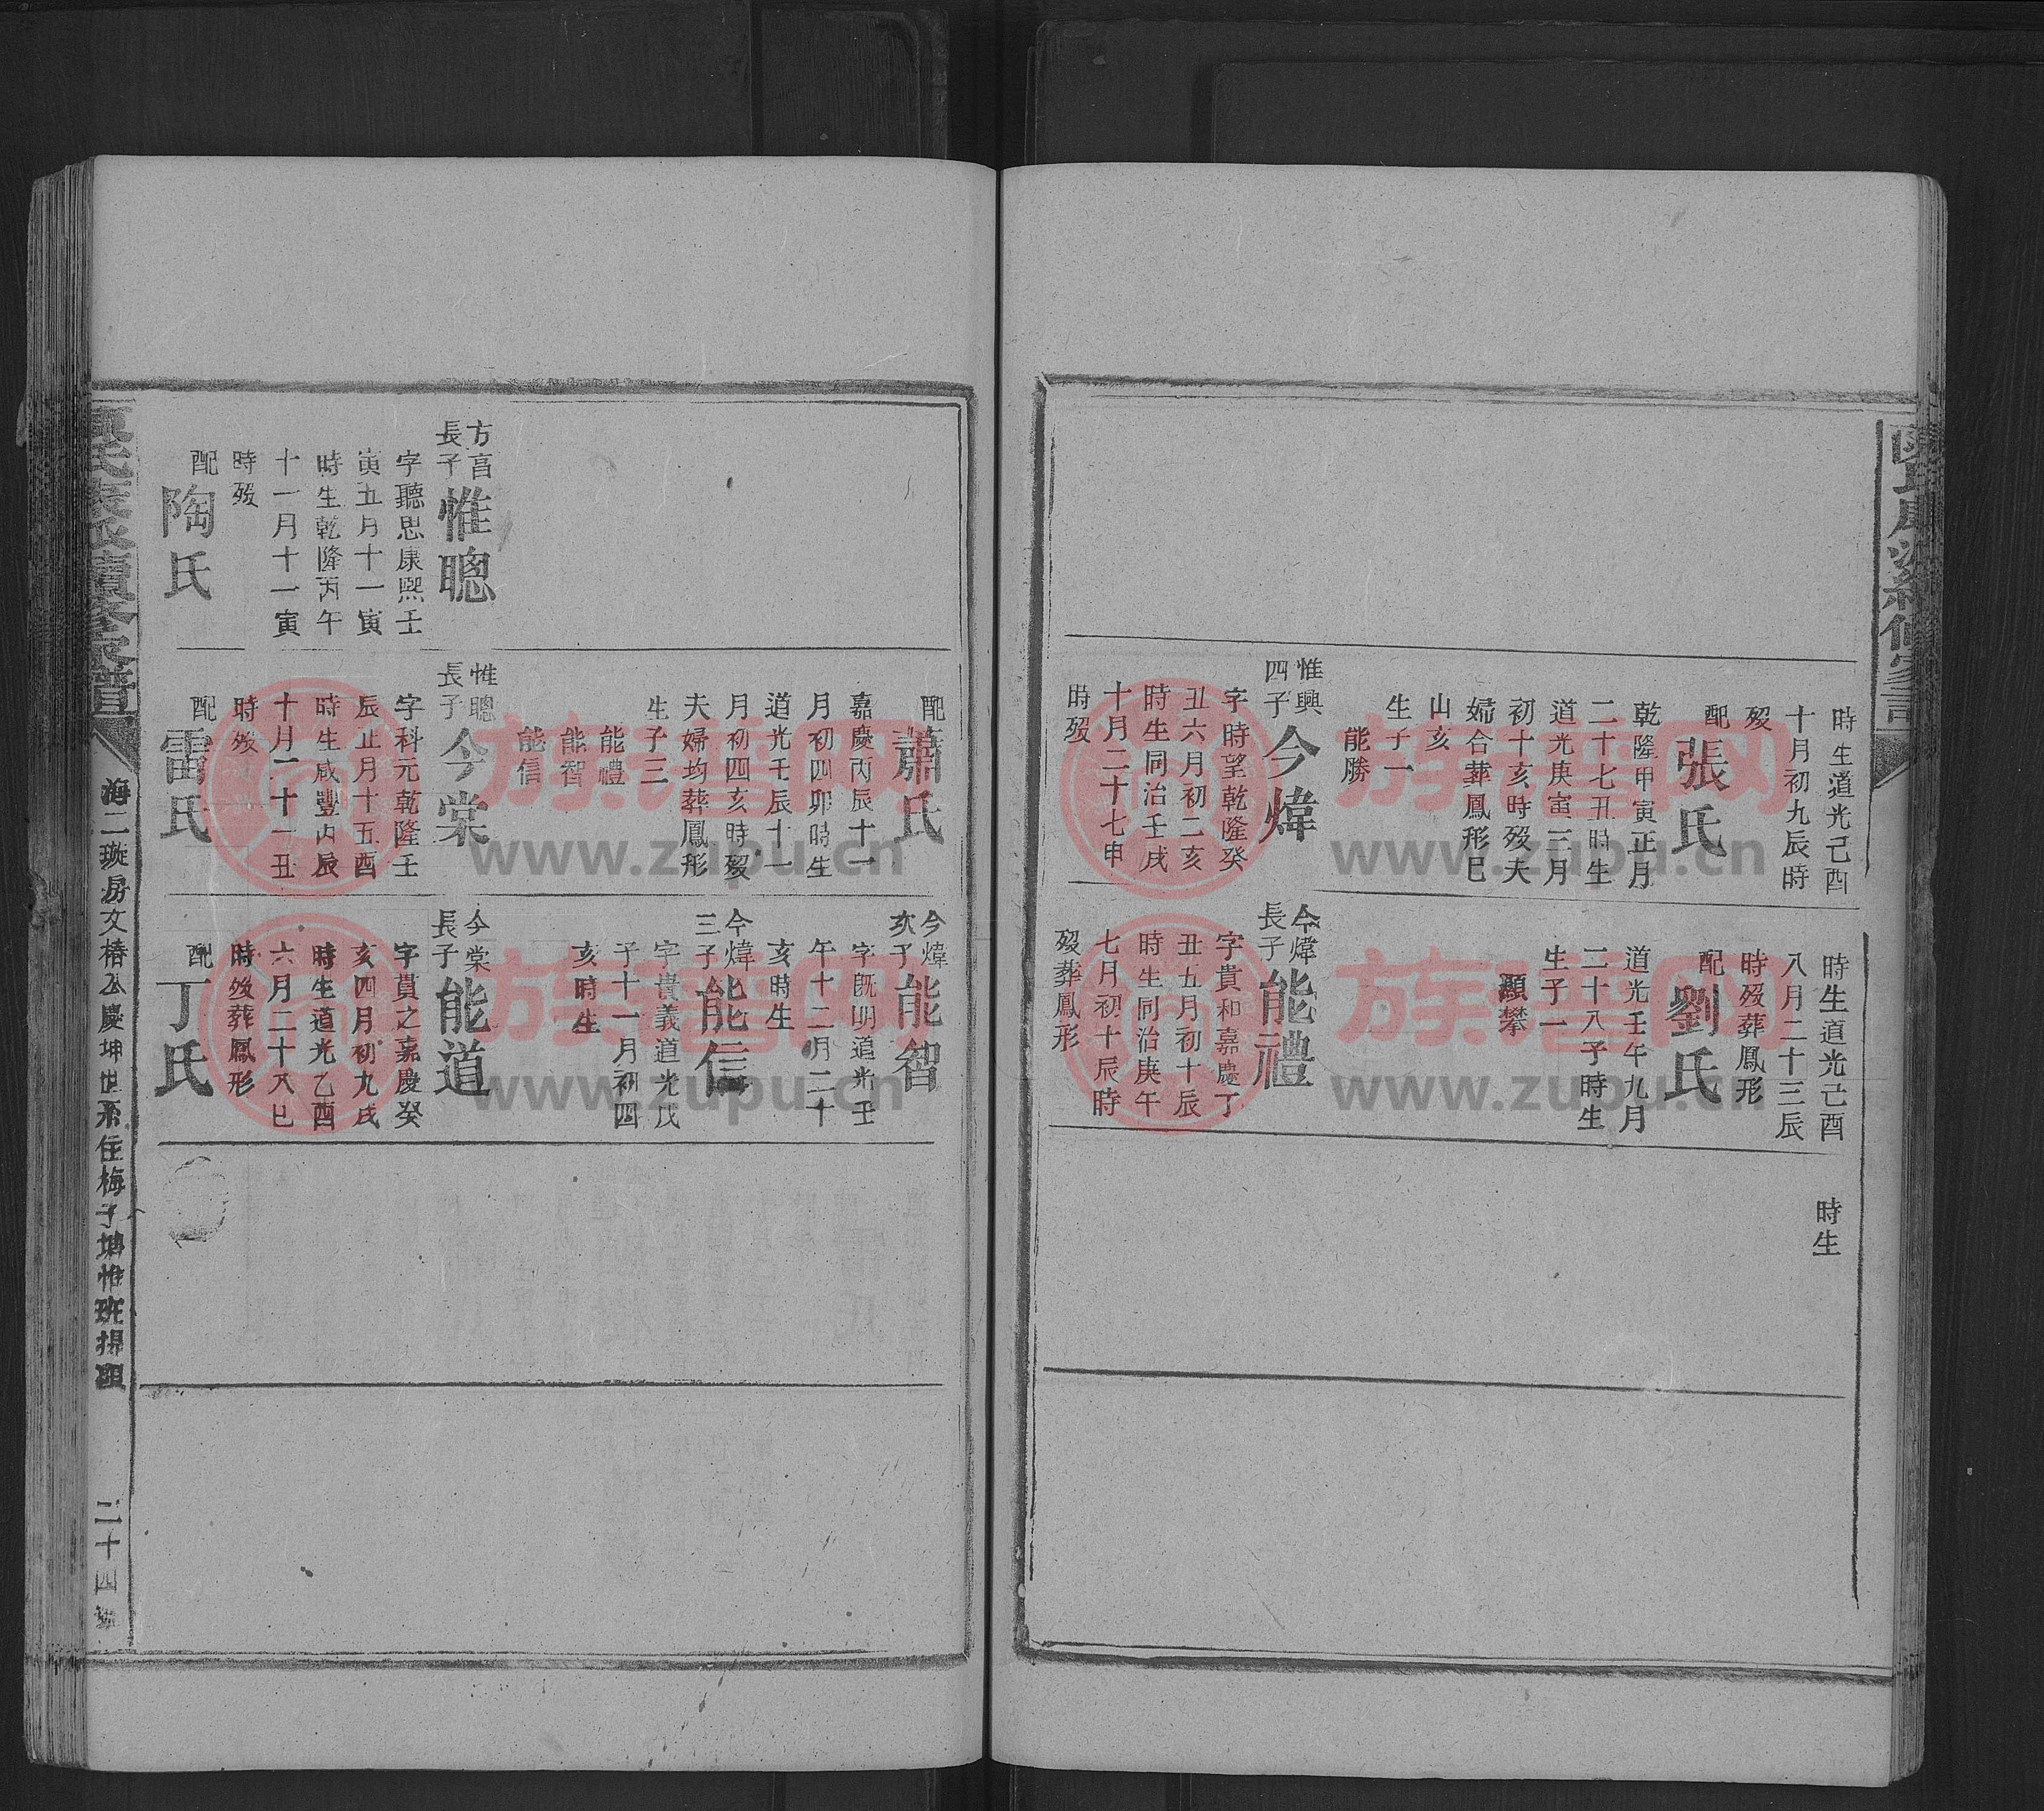 時生道光己酉
十月初九辰時
歿
配張氏
乾隆甲寅正月
二十七丑時生
道光庚寅三月
初十亥時歿夫
婦合葬鳳形巳
山亥
生子一
能勝
惟興
四子
今煒
字時望乾隆癸
丑六月初二亥
時生同治壬戌
十月二十七申
時歿
時生道光己酉
八月二十三辰
時歿葬鳳形
配劉氏
道光壬午九月
二十八子時生
生子一
顯攀
今煒
長子
能禮
字貴和嘉慶丁
丑五月初十辰
時生同治庚午
七月初十辰時
歿葬鳳形
時生
方亯
長子
惟聰
字聽思康熙壬
寅五月十一寅
時生乾隆丙午
十一月十一寅
時歿
配陶氏
配蕭氏
嘉慶丙辰十一
月初四卯時生
道光壬辰十一
月初四亥時歿
夫婦均葬鳳形
生子三
能禮
能智
能信
惟聰
長子
今棠
字科元乾隆壬
辰正月十五酉
時生咸豐丙辰
十月二十一丑
時歿
配雷氏
今煒
次子
能智
字既明道光壬
午十二月二十
亥時生
今煒
三子
能信
字貴義道光戊
子十一月初四
亥時生
今棠
長子
能道
字貫之嘉慶癸
亥四月初九戌
時生道光乙酉
六月二十八巳
時歿葬鳳形
配丁氏
續修家譜
海二璇房文椿公慶坤世系住梅子塘惟班提頭
二十四
族譜网
www.zupu.cn
族譜网
www.zupu.cn
族譜网
www.zupu.cn
族譜网
www.zupu.cn